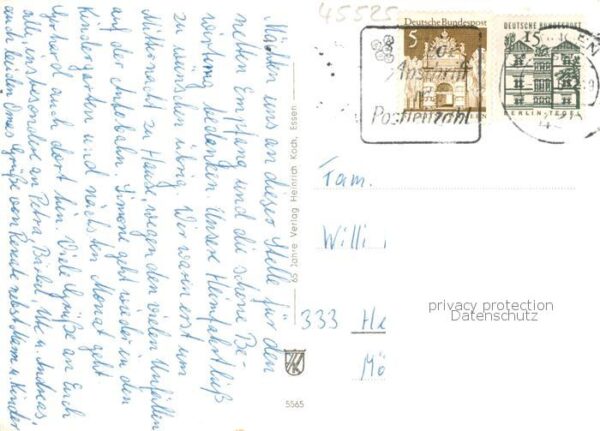 45525
Möchten uns an dieser Stelle für den
netten Empfang und die schöne Be-
wirtung bedanken. Unsere Heimfahrt ließ
zu wünschen übrig. Wir waren erst um
Mitternacht zu Hause, wegen den vielen Unfällen
auf der Autobahn. Simone geht wieder in den
Kindergarten und nächsten Monat geht
auch dort hin. Viele Grüße an Euch
alle, insbesondere an Petra, Bärbel, Ute u. Andreas,
auch bei den Omas. Grüße von Renate nebst Mann u. Kinder
65 Jahre Verlag Heinrich Koch, Essen
5565
5
Deutsche Bundespost
15
DEUTSCHE BUNDESPOST
BERLIN-TEGEL
Anschrift
Postleitzahl
Fam.
Willi
333 He
Mö
privacy protection
Datenschutz